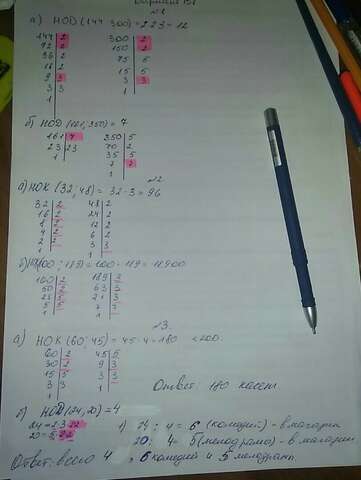 Вариант
№1
а) НОD (144 300) = 2·2·3 = 12
144 | 2 300 | 2
72 | 2 150 | 2
36 | 2 75 | 5
18 | 2 15 | 5
9 | 3 3 | 3
3 | 3 1
1
б) НОD (161, 350) = 7
161 | 7 350 | 5
23 | 23 70 | 2
1 35 | 5
7 | 7
1
№2
а) НОК (32, 48) = 32·3 = 96
32 | 2 48 | 2
16 | 2 24 | 2
8 | 2 12 | 2
4 | 2 6 | 2
2 | 2 3 | 3
1 1
(100; 189) = 100·189 = 18900
100 | 2 189 | 3
50 | 2 63 | 3
25 | 5 21 | 3
5 | 5 7 | 7
1 1
№3.
а) НОК (60; 45) = 45·4 = 180 <200.
60 | 2 45 | 5
30 | 2 9 | 3
15 | 5 3 | 3
3 | 3 1
1
Ответ: 180 кассет
НОD (24, 20) = 4
24 = 2·3·2·2 1) 24 : 4 = 6 (комедий) - в магазин
20 = 5·2·2 20 : 4 = 5 (мелодрамы) - в магазин
Ответ: всего 4 , 6 комедий и 5 мелодрамм